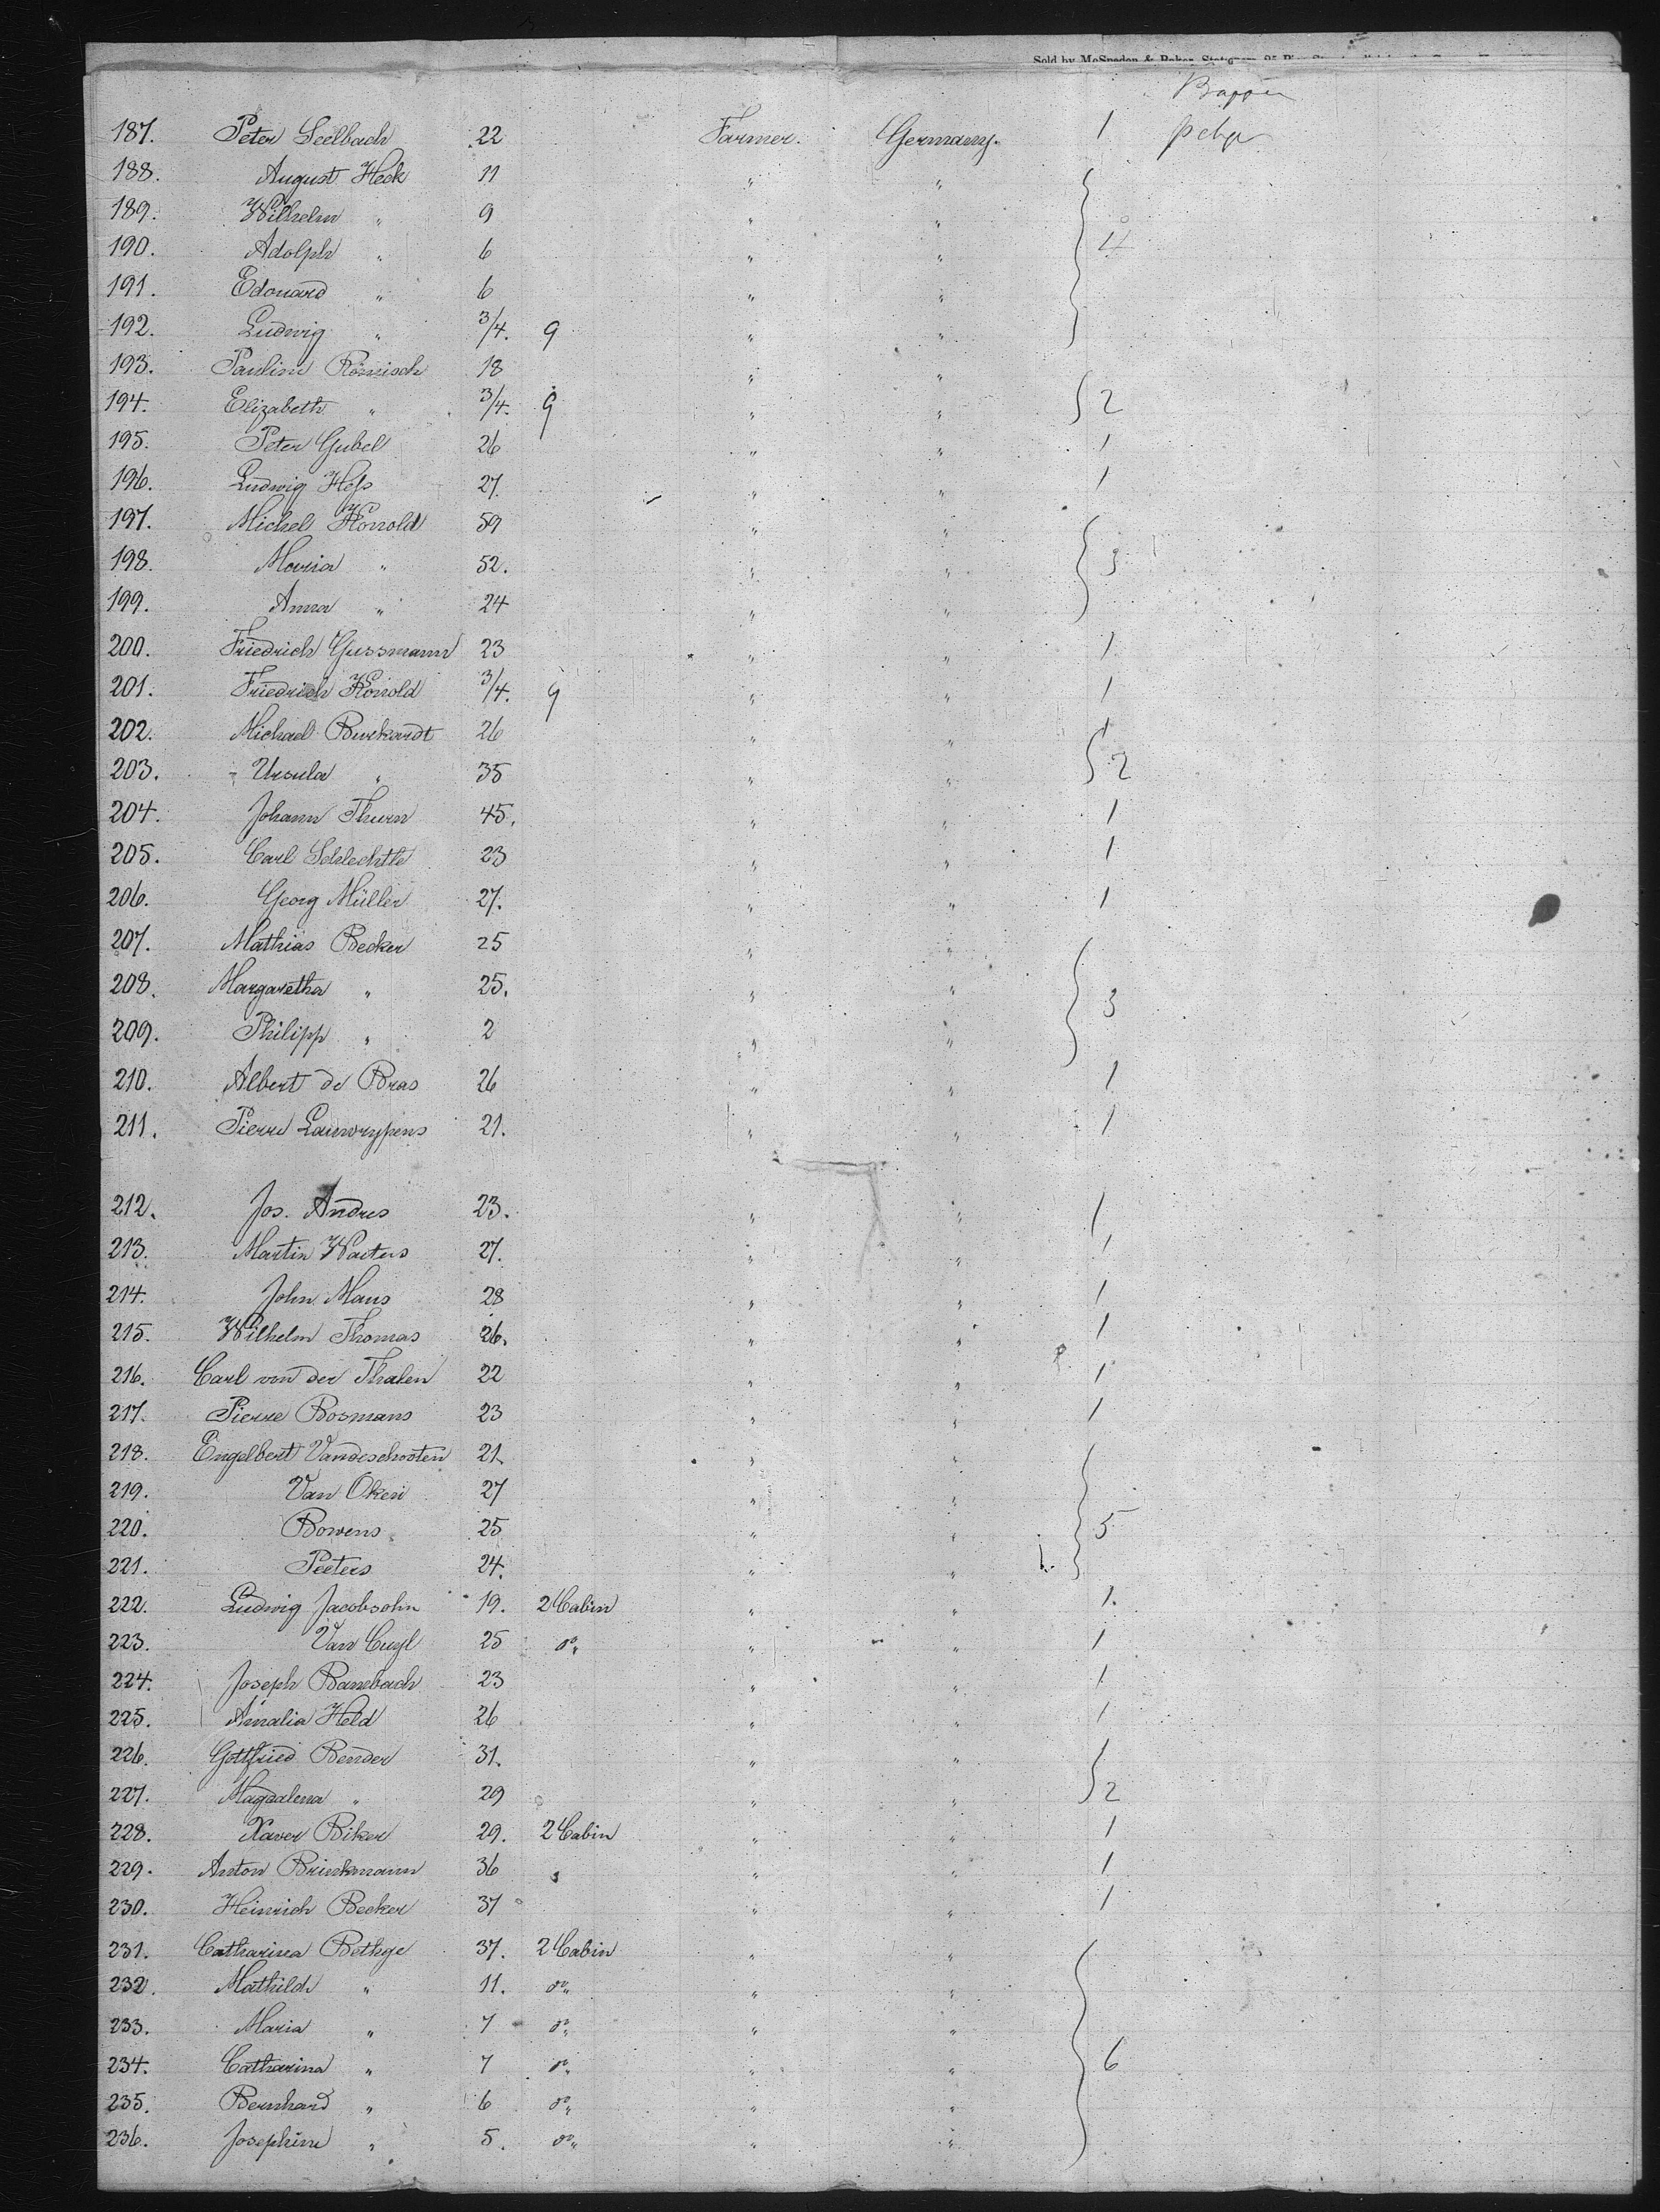 Sold by McSpedon & Baker, Stationers, 25 Pine
187. Peter Seelbach 22 Farmer. Germany. 1
188. August Heck 11 " "
189. Wilhelm " 9 " "
190. Adolph " 6 " " 4
191. Edouard " 6 " "
192. Ludwig " 3/4. 9 " "
193. Pauline Römisch 18 " "
194. Elizabeth " 3/4. 9 " " 2
195. Peter Gubel 26 " " 1
196. Ludwig Hess 27. " " 1
197. Michel Honold 59 " "
198. Maria " 52. " " 3
199. Anna " 24 " "
200. Friedrich Gussmann 23 " " 1
201. Friedrich Honold 3/4. 9 " " 1
202. Michael Burkardt 26 " " 1
203. Ursula " 35 " " 2
204. Johann Thurn 45. " " 1
205. Carl Schlechtle 23 " " 1
206. Georg Müller 27. " " 1
207. Mathias Becker 25 " "
208. Margaretha " 25. " " 3
209. Philipp " 2 " "
210. Albert de Bras 26 " " 1
211. Pierre 21. " " 1
212. Jos. Andres 23. " " 1
213. Martin Waters 27. " " 1
214. John Maus 28 " " 1
215. Wilhelm Thomas 26. " " 1
216. Carl von der Thalen 22 " " 1
217. Pierre Bosmans 23 " " 1
218. Engelbert Vandeschooten 21. " "
219. Van Oken 27 " "
220. Bowens 25 " " 5
221. Peeters 24. " " 1.
222. Ludwig Jacobsohn 19. 2 Cabin " " 1.
223. Van Cuyl 25 do " " 1
224. Joseph Bambach 23 " " 1
225. Amalia Held 26 " " 1
226. Gottfried Bender 31. " "
227. Magdalena " 29 " " 2
228. Xaver Biker 29. 2 Cabin " " 1
229. Anton Brinkmann 36 " " " 1
230. Heinrich Becker 37 " " 1
231. Catharina Bethge 37. 2 Cabin " "
232. Mathild " 11. do " "
233. Maria " 7 do " "
234. Catharina " 7 do " " 6
235. Bernhard " 6 do " "
236. Josephine " 5. do " "